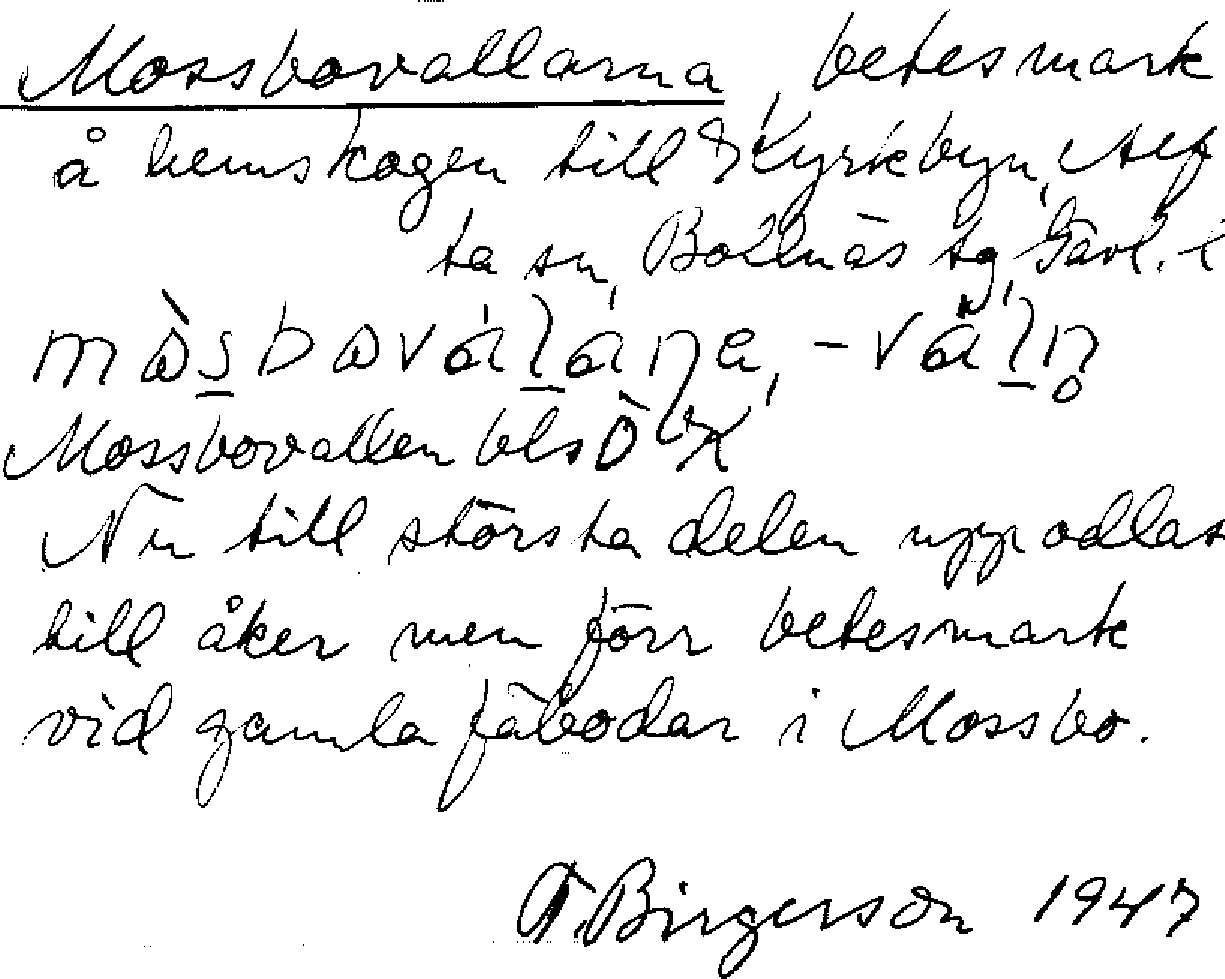 Mossbovallarna, betesmark
å hemskogen till Kyrkbyn, Alf
ta sn, Bollnäs tg, Gävl. l
Mossbovallen bls
Nu till största delen uppodlat
till åker men förr betesmark
vid gamla fäbodar i Mossbo.
T. Birgerson 1947